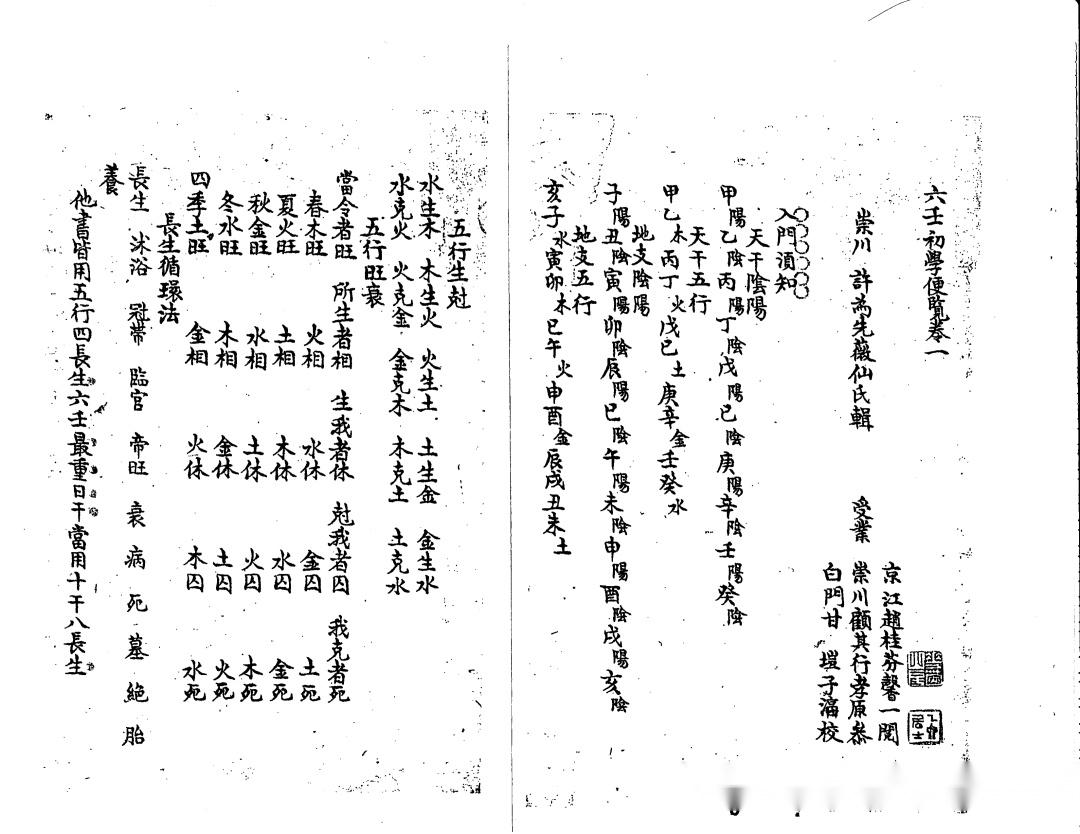 六壬初學便覽卷一
崇川 許為先薇仙氏輯 受業
京江趙桂芬馨一閱
崇川顧其行孝原叅
白門甘 塏子滀校
入門須知
天干陰陽
甲陽乙陰丙陽丁陰戊陽己陰庚陽辛陰壬陽癸陰
天干五行
甲乙木丙丁火戊己土庚辛金壬癸水
地支陰陽
子陽丑陰寅陽卯陰辰陽巳陰午陽未陰申陽酉陰戌陽亥陰
地支五行
亥子水寅卯木巳午火申酉金辰戌丑未土
五行生尅
水生木 木生火 火生土 土生金 金生水
水克火 火克金 金克木 木克土 土克水
五行旺衰
當令者旺 所生者相 生我者休 尅我者囚 我克者死
春木旺 火相 水休 金囚 土死
夏火旺 土相 木休 水囚 金死
秋金旺 水相 土休 火囚 木死
冬水旺 木相 金休 土囚 火死
四季土旺 金相 火休 木囚 水死
長生循環法
長生 沐浴 冠帶 臨官 帝旺 衰 病 死 墓 絕 胎
養
他書皆用五行四長生六壬最重日干當用十干八長生